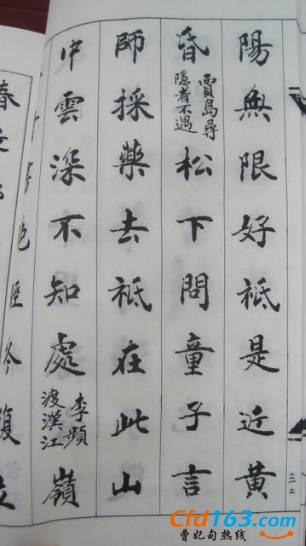 陽無限好祗是近黃
昏
賈島尋
隱者不遇
松下問童子言
師採藥去祗在此山
中雲深不知處
李頻
渡漢江
嶺
書
冬復
春
三二
Cfd163.com
曹妃甸热线